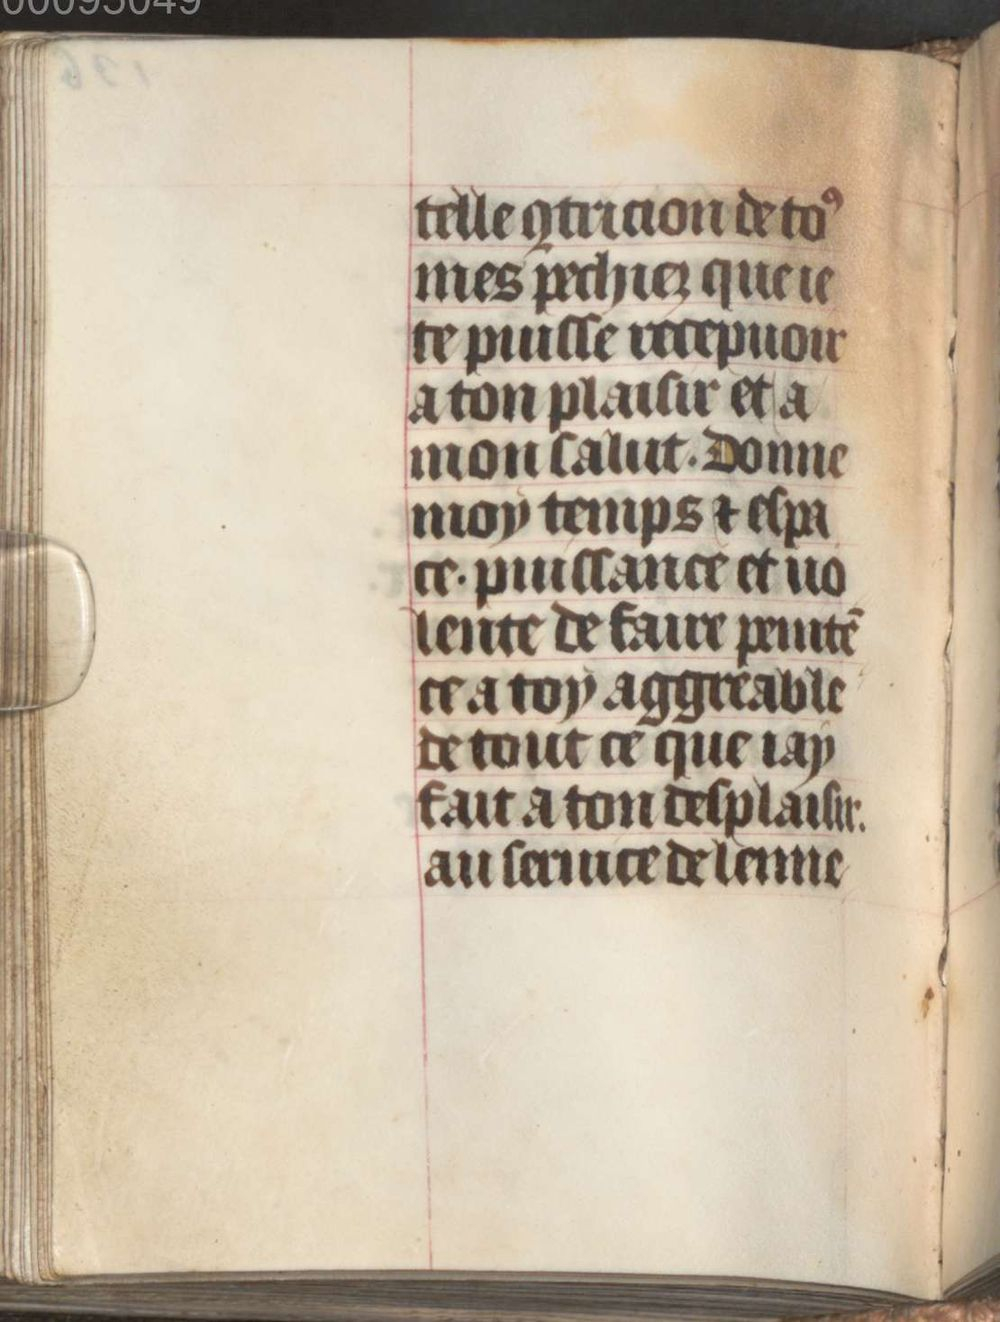 00095049
telle ꝯtricion de toꝰ
mes pechiez que ie
te puisse recepuoir
a ton plaisir et a
mon salut. Donne
moy temps ⁊ espa
ce. puissance et uo
lente de faire penitē
ce a toy aggreable
de tout ce que iay
fait a ton desplaisir.
au seruice de lenne